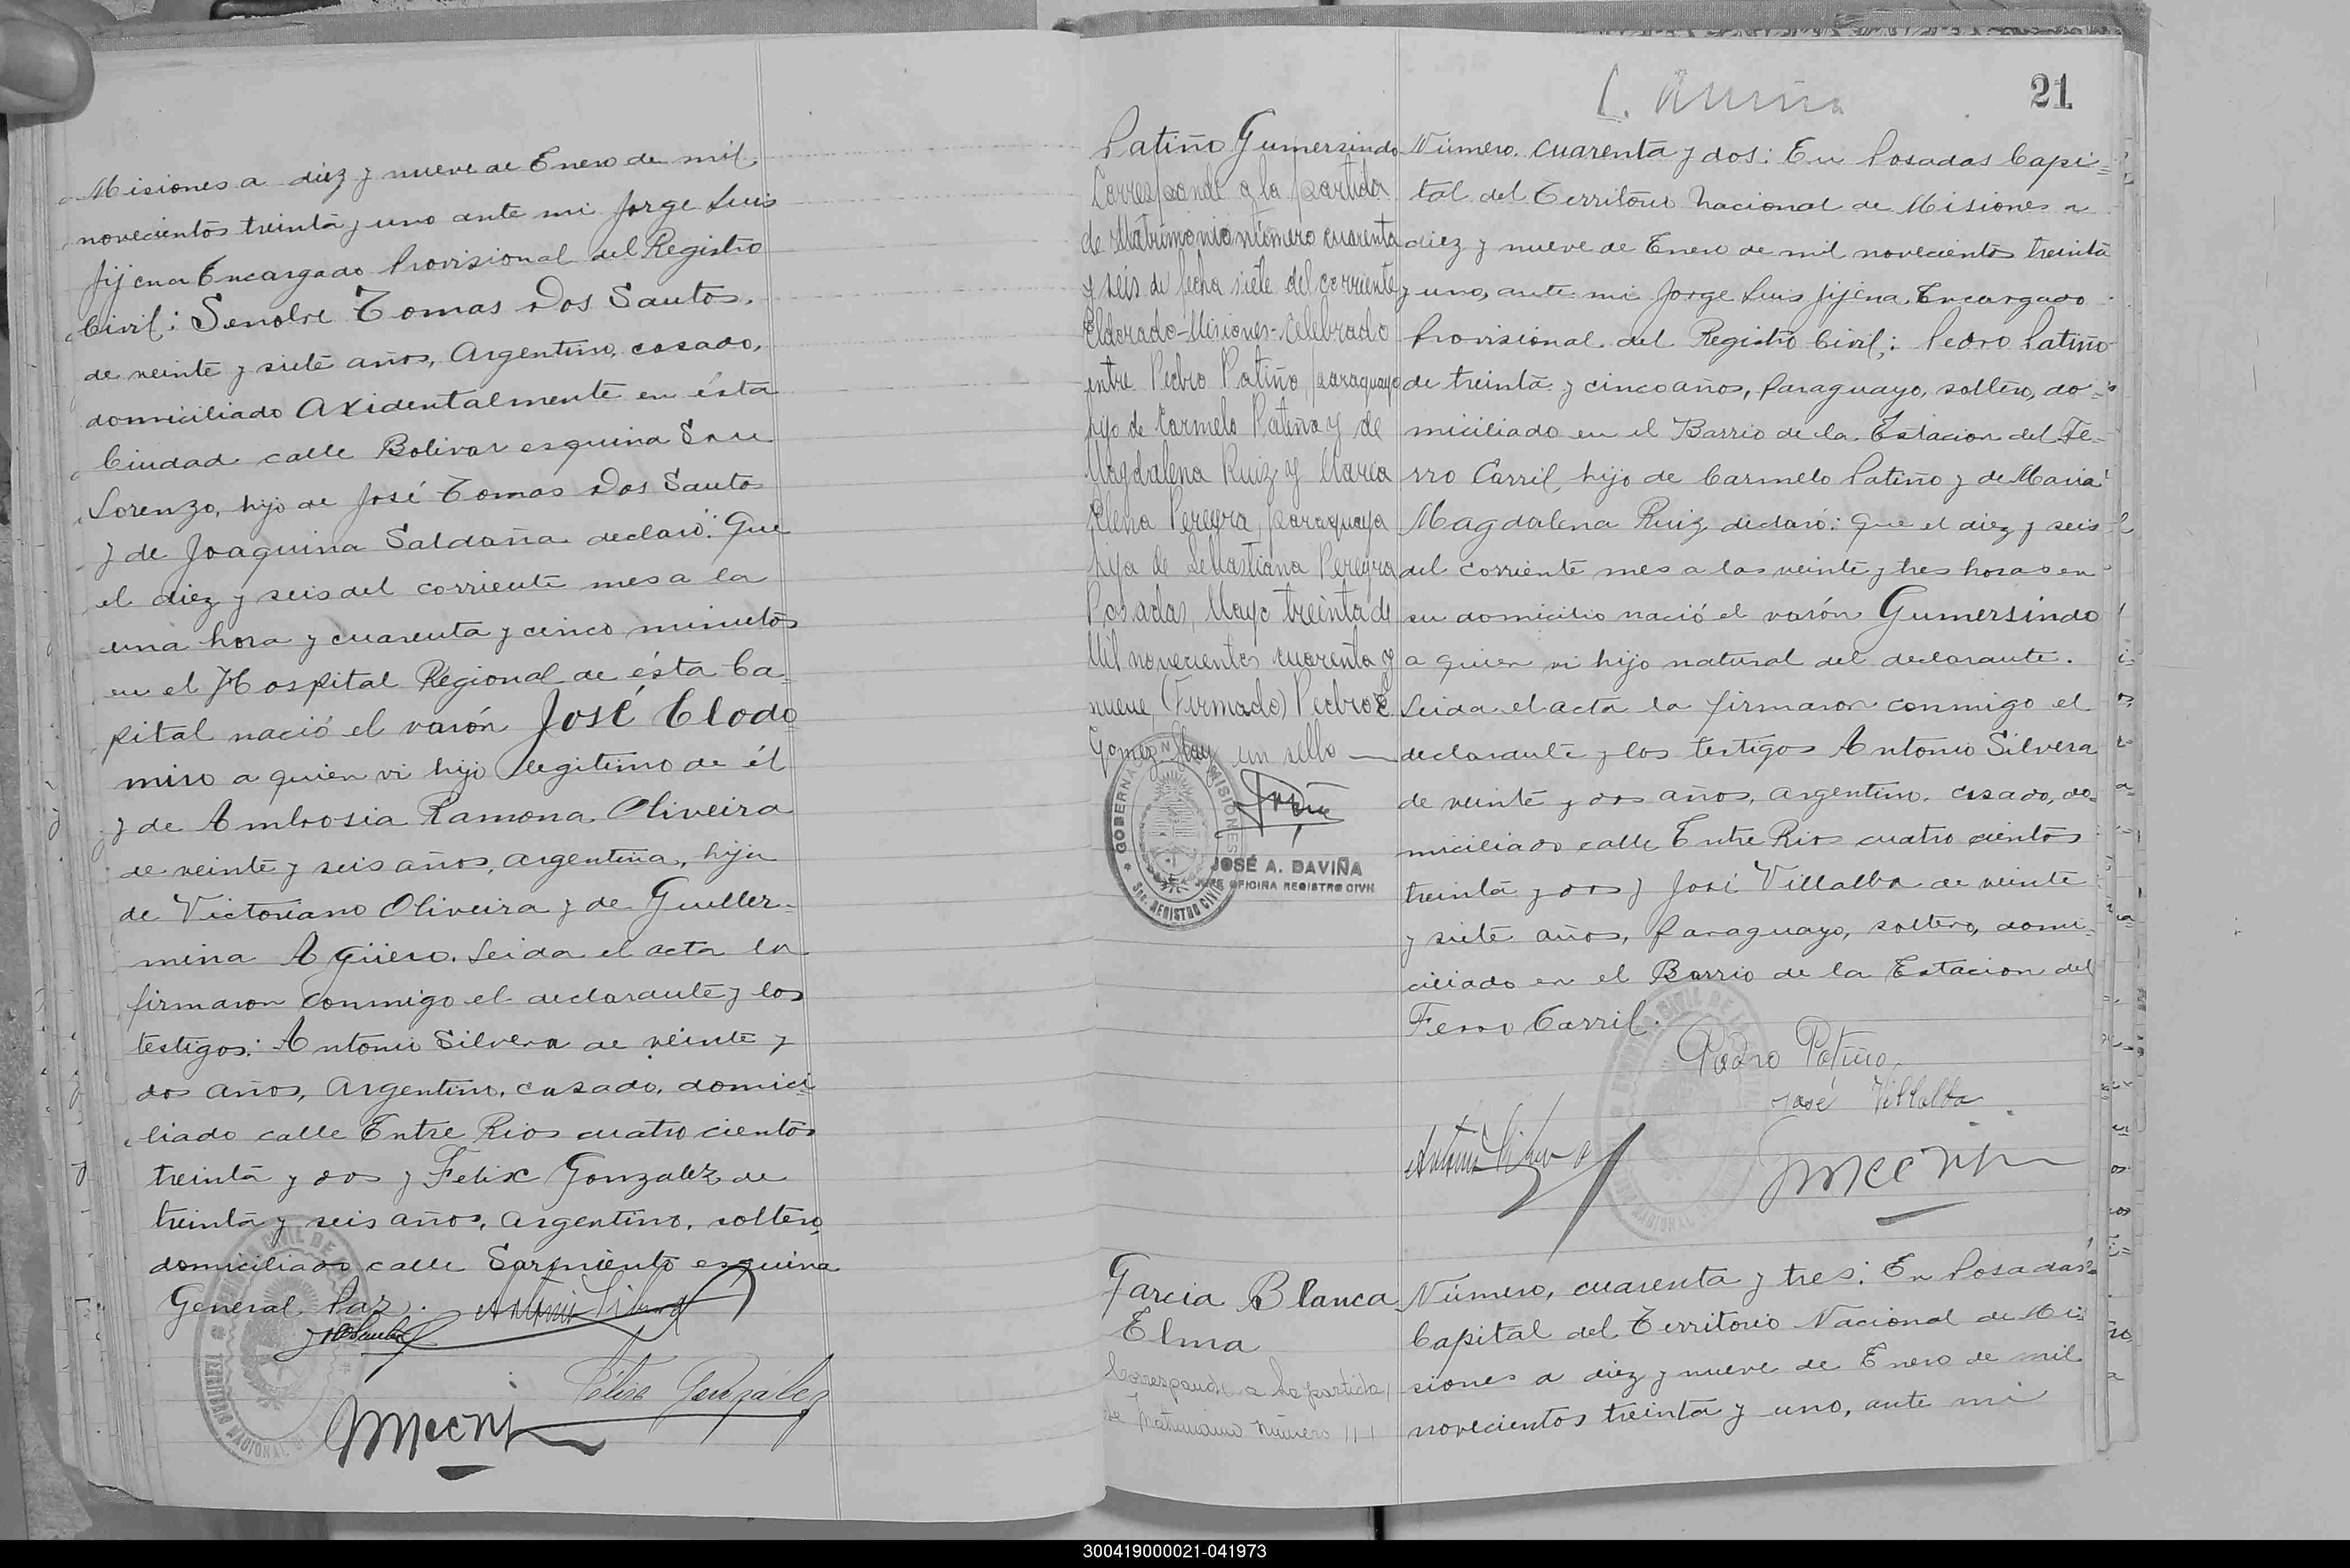 Misiones a diez y nueve de Enero de mil
novecientos treinta y uno ante mi Jorge Luis
Jijena Encargado Provisional del Registro
Civil: Senobre Tomas Dos Santos,
de veinte y siete años, Argentino, casado,
domiciliado Axidentalmente en ésta
Ciudad calle Bolivar esquina San
Lorenzo, hijo de José Tomas Dos Santos
y de Joaquina Saldaña declaró: Que
el diez y seis del corriente mes a la
una hora y cuarenta y cinco minutos
en el Hospital Regional de ésta Ca=
pital nació el varón José Clodo
miro a quien vi hijo legitimo de él
y de Ambrosia Ramona Oliveira
de veinte y seis años, argentina, hija
de Victoriano Oliveira y de Guiller-
mina Agüero. Leida el acta la
firmaron conmigo el declarante y los
testigos: Antonio Silvera de veinte y
dos años, Argentino, casado, domici
liado calle Entre Rios cuatro cientos
treinta y dos y Felix Gonzalez de
treinta y seis años, Argentino, soltero,
domiciliado calle Sarmiento esquina
General Paz.
Antonio Silvera
Félix González
21
Patiño Gumersindo
Corresponde a la partida
de Matrimonio número cuarenta
y seis de fecha siete del corriente
Eldorado-Misiones-Celebrado
entre Pedro Patiño, paraguayo
hijo de Carmelo Patiño y de
Magdalena Ruiz y María
Elena Pereyra, paraguaya
hija de Sebastiana Pereyra
Posadas, Mayo treinta de
Mil novecientos cuarenta y
nueve, (Firmado) Pedro E.
Gomez-Hay un sello —
GOBERNA MISIONES
Sec. REGISTRO CIVIL
JOSÉ A. DAVIÑA
JEFE OFICINA REGISTRO CIVIL
Número. cuarenta y dos: En Posadas Capi=
tal del Territorio Nacional de Misiones a
diez y nueve de Enero de mil novecientos treinta
y uno, ante mi Jorge Luis Jijena, Encargado
Provisional del Registro Civil,: Pedro Patiño
de treinta y cinco años, Paraguayo, soltero, do=
miciliado en el Barrio de la Estacion del Fe=
rro Carril, hijo de Carmelo Patiño y de Maria
Magdalena Ruiz declaró: Que el diez y seis
del corriente mes a las veinte y tres horas en
su domicilio nació el varón Gumersindo
a quien vi hijo natural del declarante.
Leida el acta la firmaron conmigo el
declarante y los testigos Antonio Silvera
de veinte y dos años, argentino. casado, do=
miciliado calle Entre Rios cuatro cientos
treinta y dos y José Villalba de veinte
y siete años, Paraguayo, soltero, domi=
ciliado en el Barrio de la Estacion del
Ferro Carril.
Pedro Patiño
José Villalba
Antonio Silvera
Garcia Blanca
Elma
Corresponde a la partida
de Matrimonio número 111
Número, cuarenta y tres: En Posadas
Capital del Territorio Nacional de Mi=
siones a diez y nueve de Enero de mil
novecientos treinta y uno, ante mi
300419000021-041973